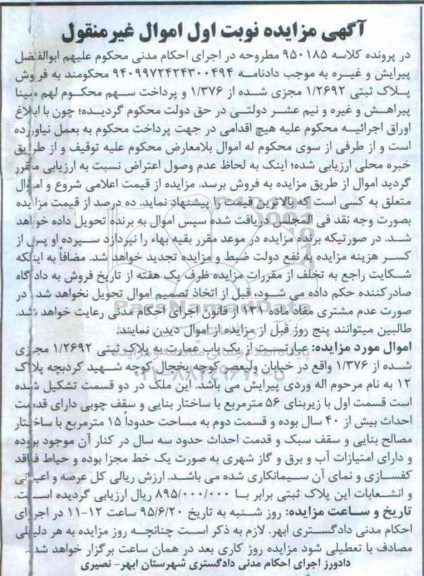 آگهی مزایده نوبت اول اموال غیرمنقول
در پرونده کلاسه ۹۵۰۱۸۵ مطروحه در اجرای احکام مدنی محکوم علیهم ابوالفضل
پیرایش و غیره به موجب دادنامه ۹۴۰۹۹۷۲۴۲۴۳۰۰۴۹۴ محکومند به فروش
پلاک ثبتی ۱/۲۶۹۲ مجزی شده از ۱/۳۷۶ و پرداخت سهم محکوم لهم مینا
پیراهش و غیره و نیم عشر دولتی در حق دولت محکوم گردیده؛ چون با ابلاغ
اوراق اجرائیه محکوم علیه هیچ اقدامی در جهت پرداخت محکوم به بعمل نیاورده
است و از طرفی از سوی محکوم له اموال بلامعارض محکوم علیه توقیف و از طریق
خبره محلی ارزیابی شده؛ اینک به لحاظ عدم وصول اعتراض نسبت به ارزیابی مقرر
گردید اموال از طریق مزایده به فروش برسد. مزایده از قیمت اعلامی شروع و اموال
متعلق به کسی است که بالاترین قیمت را پیشنهاد نماید. ده درصد از قیمت مزایده
بصورت وجه نقد فی المجلس دریافت شده سپس اموال به برنده تحویل داده خواهد
شد. در صورتیکه برنده مزایده در موعد مقرر بقیه بهاء را نپردازد سپرده او پس از
کسر هزینه مزایده به نفع دولت ضبط و مزایده تجدید خواهد شد. مضافاً به اینکه
شکایت راجع به تخلف از مقررات مزایده ظرف یک هفته از تاریخ فروش به دادگاه
صادرکننده حکم داده می شود، قبل از اتخاذ تصمیم اموال تحویل نخواهد شد. در
صورت عدم مشتری مفاد ماده ۱۳۱ از قانون اجرای احکام مدنی رعایت خواهد شد.
طالبین میتوانند پنج روز قبل از مزایده از اموال دیدن نمایند.
اموال مورد مزایده: عبارتست از یک باب عمارت به پلاک ثبتی ۱/۲۶۹۲ مجزی
شده از ۱/۳۷۶ واقع در خیابان ولیعصر کوچه یخچال کوچه شهید کردبچه پلاک
۱۲ به نام مرحوم اله وردی پیرایش می باشد. این ملک در دو قسمت تشکیل شده
است قسمت اول با زیربنای ۵۶ مترمربع با ساختار بنایی و سقف چوبی دارای قدمت
احداث بیش از ۴۰ سال بوده و قسمت دوم به مساحت حدوداً ۱۵ مترمربع با ساختار
مصالح بنایی و سقف سبک و قدمت احداث حدود سه سال در کنار آن موجود بوده
و دارای امتیازات آب و برق و گاز شهری به صورت یک خط مجزا بوده و حیاط فاقد
کفسازی و نمای آن سیمانکاری شده می باشد. ارزش ریالی کل عرصه و اعیانی
و انشعابات این پلاک ثبتی برابر با ۸۹۵/۰۰۰/۰۰۰ ریال ارزیابی گردیده است.
تاریخ و ساعت مزایده: روز شنبه به تاریخ ۹۵/۶/۲۰ ساعت ۱۲-۱۱ در اجرای
احکام مدنی دادگستری ابهر. لازم به ذکر است چنانچه روز مزایده به هر دلیلی
مصادف با تعطیلی شود مزایده روز کاری بعد در همان ساعت برگزار خواهد شد.
دادورز اجرای احکام مدنی دادگستری شهرستان ابهر- نصیری